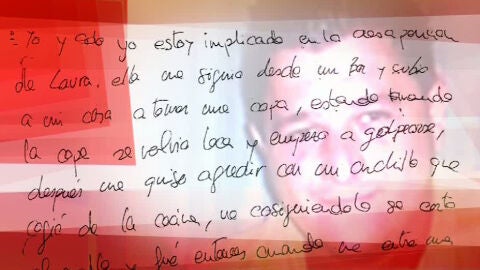 = Yo y solo yo estoy implicado en la desaparicion
de Laura. ella me siguio desde un Bar y subio
a mi casa a tomar una copa, estando tomando
la copa se volvio loca y empezo a golpearse,
despues me quiso agredir con un cuchillo que
cogió de la cocina, no cosiguiendolo se corto
y fué entonces cuando me entro una